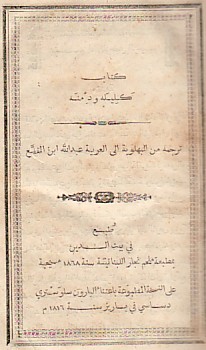 كتاب
كليلة ودمنة
ترجمه من البهلوية الى العربية عبدالله ابن المقفع
طبع
في بيت الدين
بمطبعة معلم نجار اللبنانية سنة ١٨٦٨ مسيحية
على النسخة المطبوعة باعتناء البارون سلوستري
دساسي في باريز سنة ١٨١٦ م